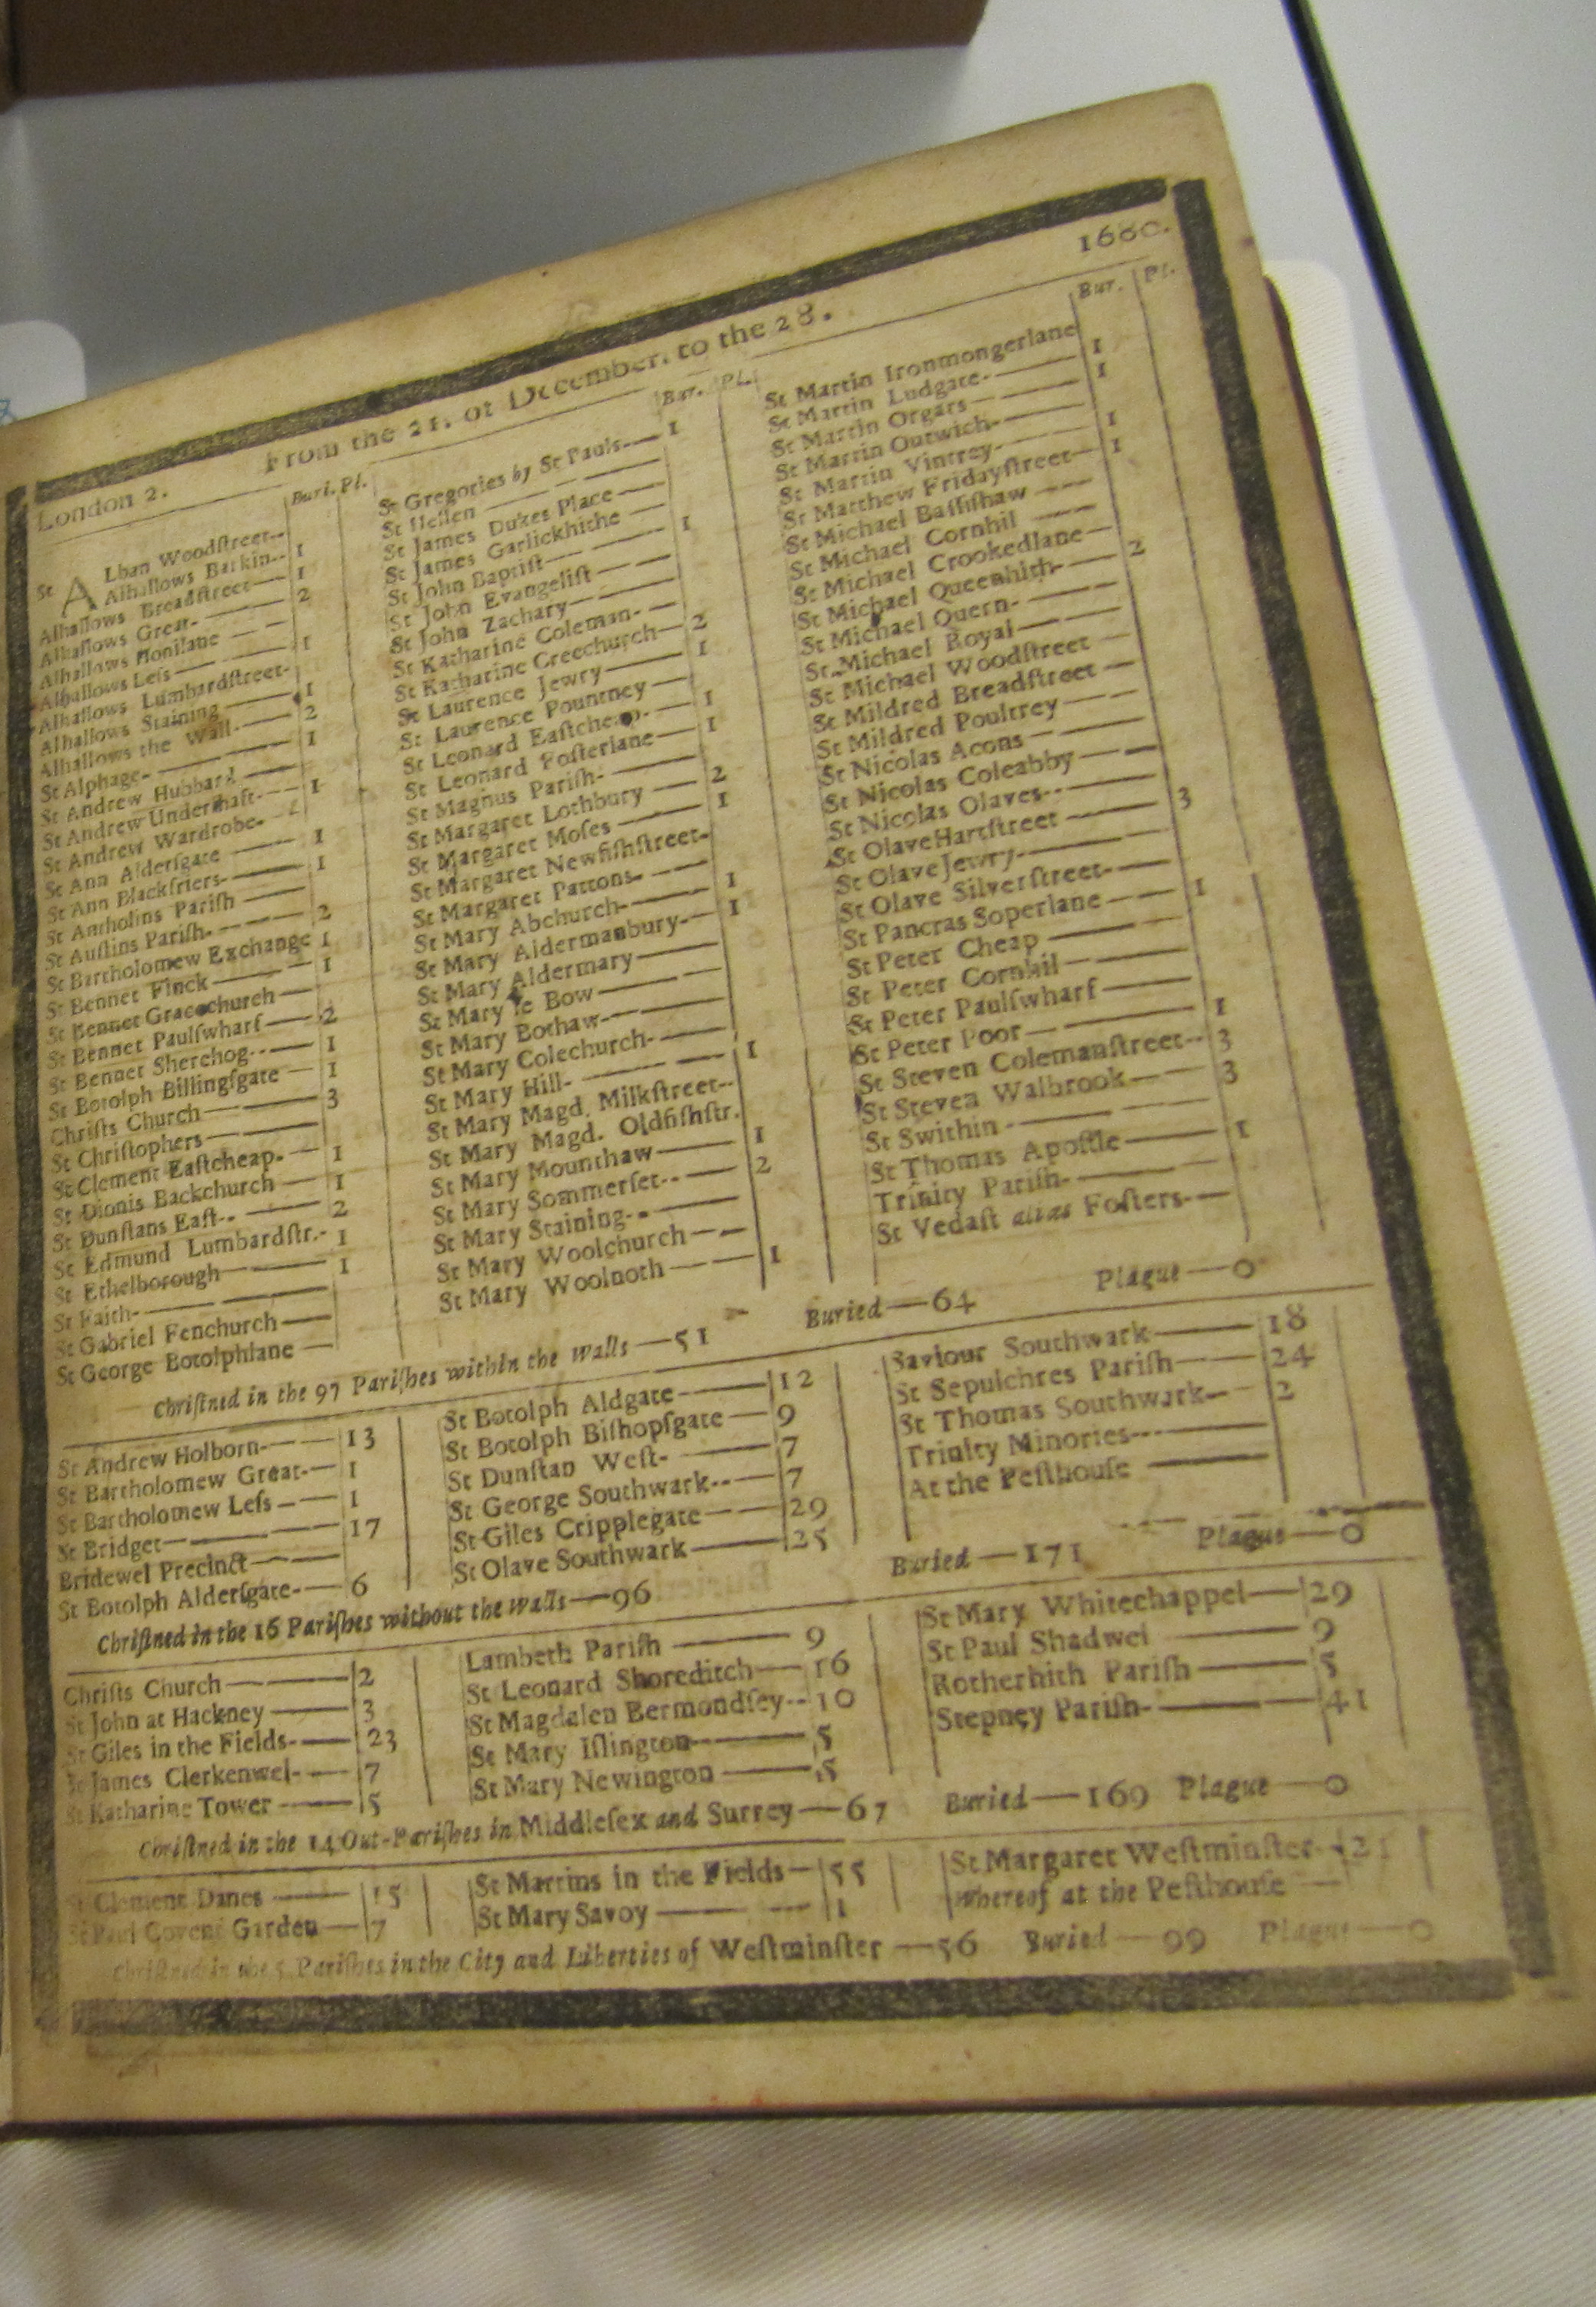 1680.
From the 21. of December, to the 28.
London 2.
Buri. Pl.
St ALban Woodſtreet--
Alhallows Barkin-- 1
Alhallows Breadſtreet— 1
Alhallows Great-— 2
Alhallows Honilane — —
Alhallows Leſs — — 1
Alhallows Lumbardſtreet-
Alhallows Staining — 1
Alhallows the Wall-— 2
St Alphage-—— 1
St Andrew Hubbard —
St Andrew Underſhaft-— 1
St Andrew Wardrobe-
St Ann Alderſgate — 1
St Ann Blackfriers-— 1
St Antholins Pariſh —
St Auſtins Pariſh-— 2
St Bartholomew Exchange 1
St Bennet Finck —— 1
St Bennet Gracechurch —
St Bennet Paulſwharf — 2
St Bennet Sherehog--— 1
St Botolph Billingſgate — 1
Chriſts Church —— 3
St Chriſtophers ——
St Clement Eaſtcheap-— 1
St Dionis Backchurch — 1
St Dunſtans Eaſt--— 2
St Edmund Lumbardſtr.- 1
St Ethelborough —— 1
St Faith-——
St Gabriel Fenchurch —
St George Botolphlane —
Bur. Pl.
St Gregories by St Pauls-— 1
St Hellen — —
St James Dukes Place —
St James Garlickhithe —
St John Baptiſt — — 1
St John Evangeliſt —
St John Zachary ——
St Katharine Coleman-—
St Katharine Creechurch— 2
St Laurence Jewry —— 1
St Laurence Pountney —
St Leonard Eaſtcheap-— 1
St Leonard Foſterlane — 1
St Magnus Pariſh-——
St Margaret Lothbury — 2
St Margaret Moſes —— 1
St Margaret Newfiſhſtreet-
St Margaret Pattons-—
St Mary Abchurch-—— 1
St Mary Aldermanbury-— 1
St Mary Aldermary ——
St Mary le Bow — —
St Mary Bothaw-——
St Mary Colechurch-—
St Mary Hill-—— 1
St Mary Magd. Milkſtreet--
St Mary Magd. Oldfiſhſtr.
St Mary Mounthaw —— 1
St Mary Sommerſet--— 2
St Mary Staining--—
St Mary Woolchurch ——
St Mary Woolnoth —— 1
Bur. Pl.
St Martin Ironmongerlane
St Martin Ludgate-— 1
St Martin Orgars —— 1
St Martin Outwich-—
St Martin Vintrey-—— 1
St Matthew Fridayſtreet— 1
St Michael Baſſiſhaw ——
St Michael Cornhil ——
St Michael Crookedlane —
St Michael Queenhith-— 2
St Michael Quern-——
St Michael Royal ——
St Michael Woodſtreet —
St Mildred Breadſtreet —
St Mildred Poultrey ——
St Nicolas Acons ——
St Nicolas Coleabby ——
St Nicolas Olaves--—
St Olave Hartſtreet —— 3
St Olave Jewry-——
St Olave Silverſtreet-—
St Pancras Soperlane —— 1
St Peter Cheap ——
St Peter Cornhil ——
St Peter Paulſwharf ——
St Peter Poor —— 1
St Steven Colemanſtreet-- 3
St Steven Walbrook —— 3
St Swithin-——
St Thomas Apoſtle —— 1
Trinity Pariſh-——
St Vedaſt alias Foſters-—
Chriſtned in the 97 Pariſhes within the walls —51 Buried —64 Plague —0
St Andrew Holborn-—— 13
St Bartholomew Great-— 1
St Bartholomew Leſs —— 1
St Bridget ——— 17
Bridewel Precinct ——
St Botolph Alderſgate-— 6
St Botolph Aldgate —— 12
St Botolph Biſhopſgate — 9
St Dunſtan Weſt-— 7
St George Southwark--— 7
St Giles Cripplegate —— 29
St Olave Southwark —— 25
Saviour Southwark —— 18
St Sepulchres Pariſh —— 24
St Thomas Southwark-— 2
Trinity Minories--——
At the Peſthouſe ——
Chriſtned in the 16 Pariſhes without the walls —96 Buried —171 Plague —0
Chriſts Church —— 2
St John at Hackney —— 3
St Giles in the Fields-— 23
St James Clerkenwel-— 7
St Katharine Tower —— 5
Lambeth Pariſh —— 9
St Leonard Shoreditch — 16
St Magdalen Bermondſey-- 10
St Mary Iſlington —— 5
St Mary Newington —— 5
St Mary Whitechappel— 29
St Paul Shadwel —— 9
Rotherhith Pariſh —— 5
Stepney Pariſh-—— 41
Chriſtned in the 14 Out-Pariſhes in Middleſex and Surrey —67 Buried —169 Plague —0
St Clement Danes —— 15
St Paul Covent Garden — 7
St Martins in the Fields — 55
St Mary Savoy —— 1
St Margaret Weſtminſter - 21
Whereof at the Peſthouſe —
Chriſtned in the 5 Pariſhes in the City and Liberties of Weſtminſter —56 Buried —99 Plague —0